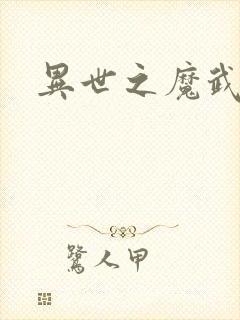 異世之魔武
鷺人甲